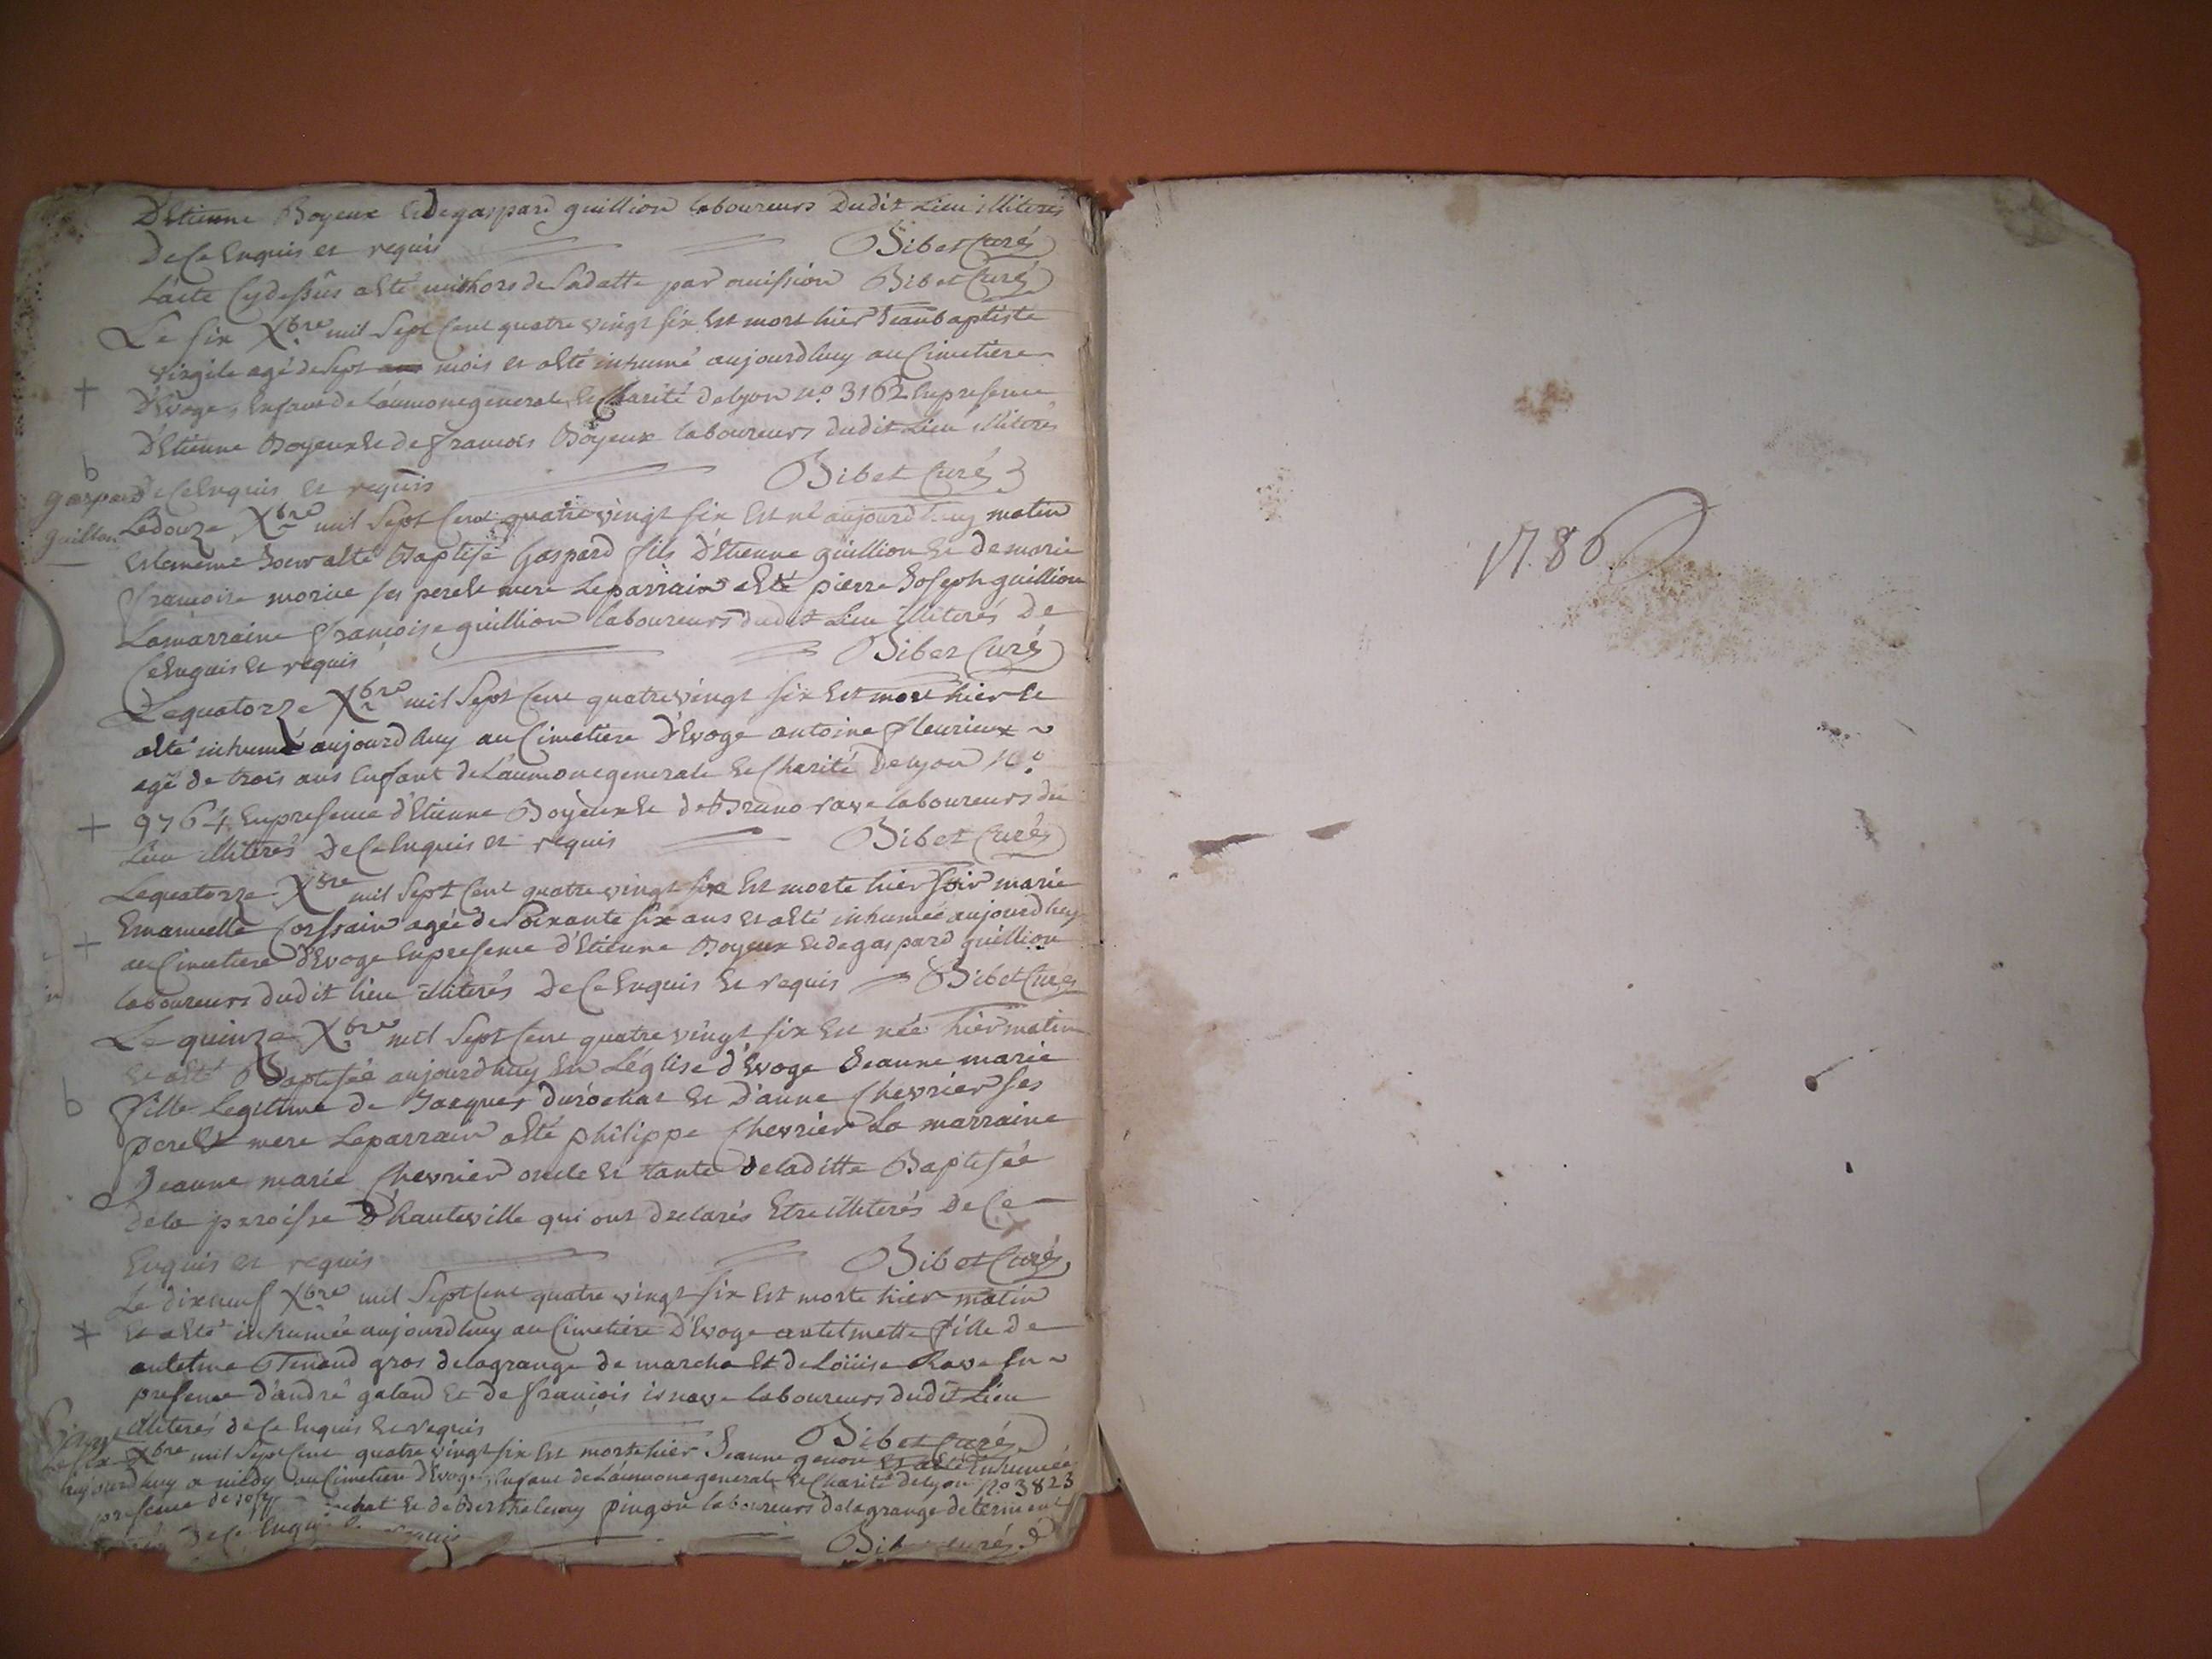 D'Etienne Boyeux Et de gaspard guillion laboureurs dudit Lieu illiterés
De Ce Enquis et requis Bibet Curé
L'acte Cy dessûs a Eté mis hors de Sa datte par omission Bibet Curé
Le six Xbre mil Sept Cent quatre vingt six Est mort hier Jean baptiste
Virgile agé de Sept mois et a Eté inhumé aujourdhuy au Cimetiere
+ D'Evoge, Enfant de L'aumone generale, Et Charité de lyon No. 3162 En presence
D'Etienne Boyeux Et de francois Boyeux laboureurs dudit Lieu illiterés
b
De Ce Enquis Et requis Bibet Curé
gaspard
guillon
Le douze Xbre mil Sept Cent quatre vingt six Est né aujourdhuy matin
Et le meme Jour a Eté Baptisé Gaspard fils D'Etienne guillion Et de marie
francoise morice ses pere Et mere Le parrain a Eté pierre Joseph guillion
La marraine francoise guillion laboureurs dudit Lieu illiterés De
Ce Enquis Et requis Bibet Curé
Le quatorze Xbre mil Sept Cent quatre vingt six Est mort hier Et
a Eté inhumé aujourdhuy au Cimetiere D'Evoge antoine fleurieux
agé de trois ans Enfant de L'aumone generale Et Charité De lyon No.
+ 9764 En presence d'Etienne Boyeux Et de Bruno rave laboureurs du
Lieu illiterés De Ce Enquis et requis Bibet Curé
Le quatorze Xbre mil Sept Cent quatre vingt six Est morte hier soir marie
Emanuelle agée de Soixante six ans et a Eté inhumée aujourdhuy
+ au Cimetiere D'Evoge En presence d'Etienne Boyeux Et de gaspard guillion
laboureurs dudit lieu illiterés De Ce Enquis Et requis Bibet Curé
Le quinze Xbre mil Sept Cent quatre vingt six Est née hier matin
Et a Eté Baptisée aujourdhuy En L'église d'Evoge Jeanne marie
b fille Legitime de Jacques durochat Et D'anne Chevrier ses
pere Et mere Le parrain a Eté philippe Chevrier La marraine
Jeanne marie Chevrier oncle Et tante de la ditte Baptisée
de la paroisse D'hauteville qui ont declarés Etre illiterés De Ce
Enquis et requis Bibet Curé
Le dix neuf Xbre mil Sept Cent quatre vingt six Est morte hier matin
+ Et a Eté inhumée aujourdhuy au Cimetiere D'Evoge antelmette fille de
antelme Tenand gros de la grange de marcha Et de Loüise Rave En
presence d'andré galand Et de françois laboureurs dudit Lieu
illiterés de Ce Enquis Et requis Bibet Curé
Le six Xbre mil Sept Cent quatre vingt six Est morte hier Jeanne genon Et a Eté Enhumée
aujourdhuy a midy au Cimetiere d'Evoge, Enfant de L'aumone generale Et Charité de lyon No. 3823
presence de Et de Berthelemy pingon laboureurs de la grange de
De Ce Enquis Curé
1786